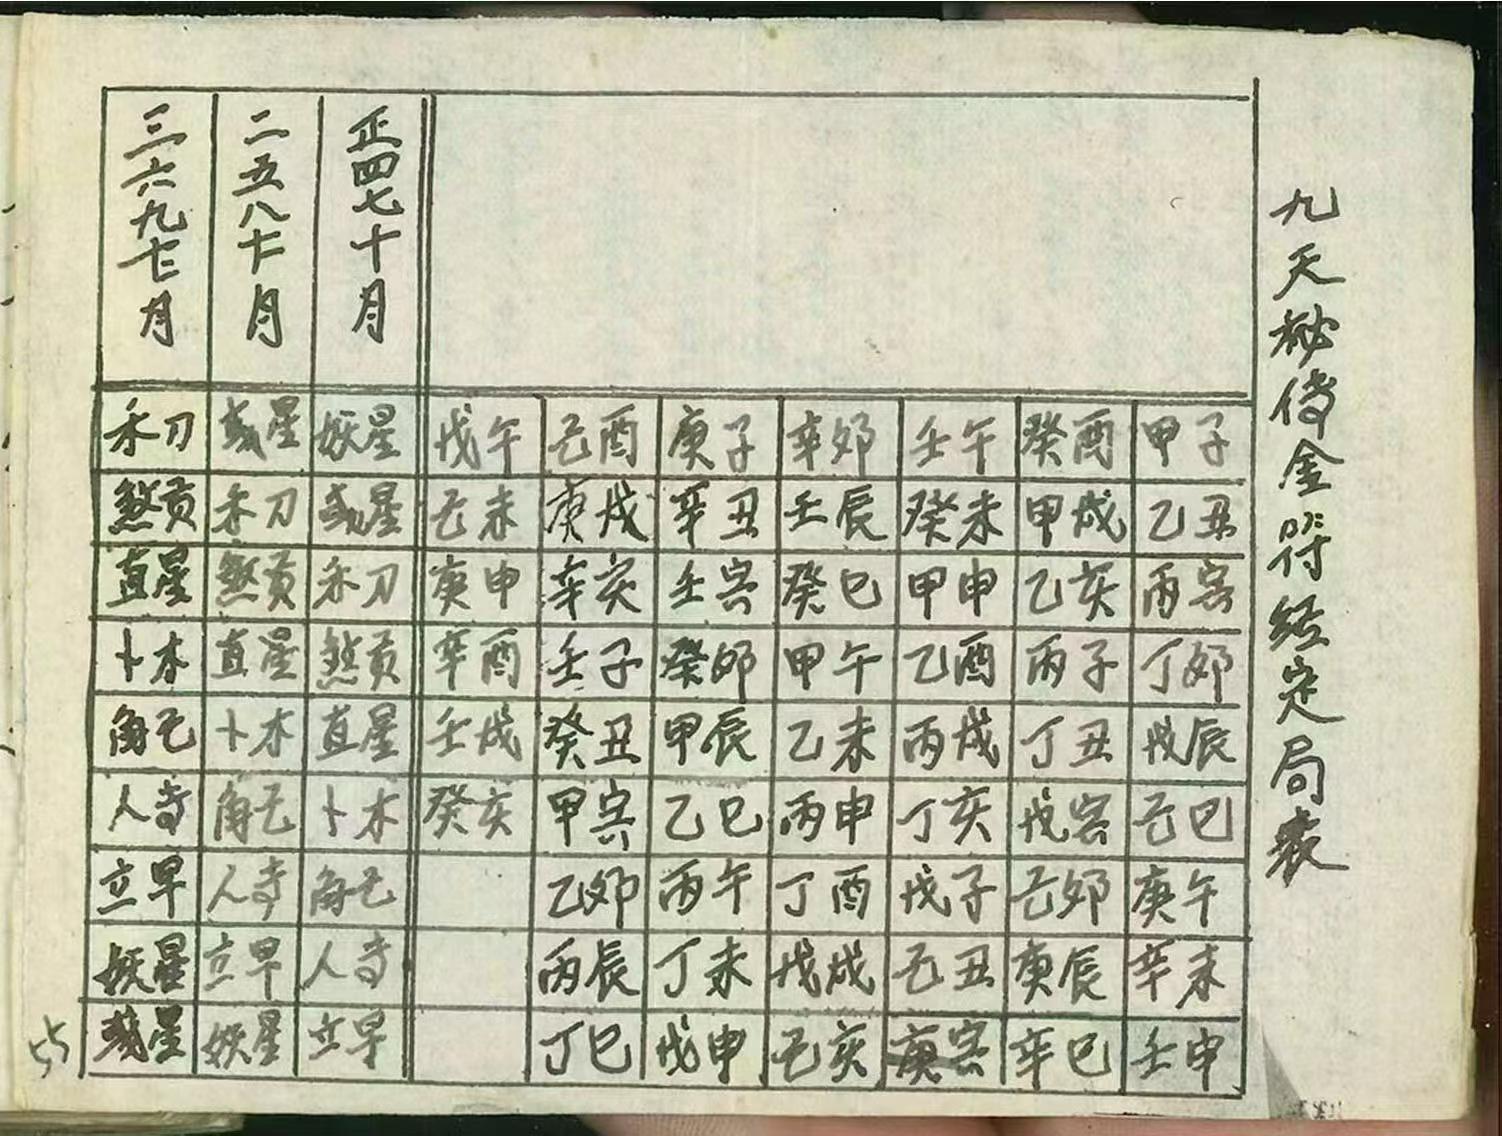 九天秘传金符经定局表
甲子 乙丑 丙寅 丁卯 戊辰 己巳 庚午 辛未 壬申
癸酉 甲戌 乙亥 丙子 丁丑 戊寅 己卯 庚辰 辛巳
壬午 癸未 甲申 乙酉 丙戌 丁亥 戊子 己丑 庚寅
辛卯 壬辰 癸巳 甲午 乙未 丙申 丁酉 戊戌 己亥
庚子 辛丑 壬寅 癸卯 甲辰 乙巳 丙午 丁未 戊申
己酉 庚戌 辛亥 壬子 癸丑 甲寅 乙卯 丙辰 丁巳
戊午 己未 庚申 辛酉 壬戌 癸亥
正四七十月 妖星 惑星 禾刀 煞贡 直星 卜木 角己 人专 立早
二五八十一月 惑星 禾刀 煞贡 直星 卜木 角己 人专 立早 妖星
三六九十二月 禾刀 煞贡 直星 卜木 角己 人专 立早 妖星 惑星
55